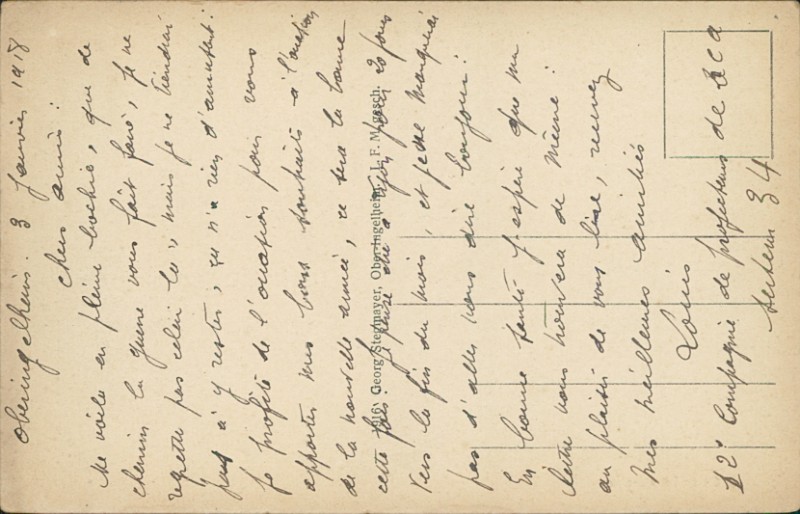 Oberingelheim. 3 Janvier 1918
chers amis :
Me voila en pleine bochie, que de
chemins la guerre vous fait faire, je ne
regrette pas celui la, mais je ne tiendrai
pas à y rester, ça n'a rien d'amusant :
Je profite de l'occasion pour vous
apporter mes bons souhaits à l'occasion
de la nouvelle année, ce sera la bonne
cette fois. Je pense aller pour 20 jours
vers la fin du mois, et je ne manquerai
pas d'aller vous dire bonjour :
En bonne santé j'espère que ma
lettre vous trouvera de même :
au plaisir de vous lire, recevez
mes meilleures amitiés
Louis
12e Compagnie de projecteurs de DCA
Secteur 34
Georg Stegmayer, Ober-Ingelheim. J. F. M. gesch.